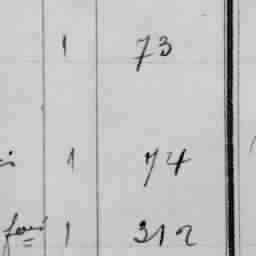 1 73
1 74
1 312